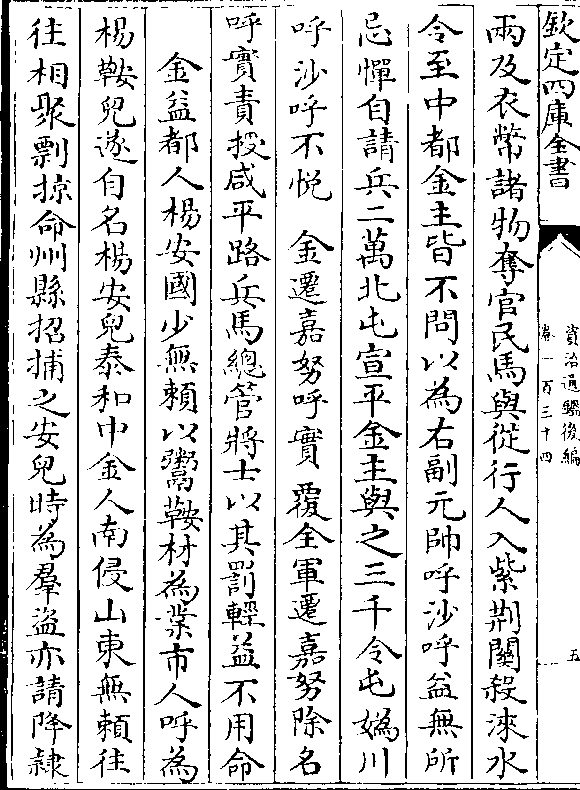 欽定四庫全書
資治通鑑後編
卷一百三十四
五
兩及衣幣諸物奪官民馬與從行人入紫荆關殺淶水
令至中都金主皆不問以為右副元帥呼沙呼益無所
忌憚自請兵二萬北屯宣平金主與之三千令屯媯川
呼沙呼不悦 金遷嘉努呼實覆全軍遷嘉努除名
呼實責授咸平路兵馬總管將士以其罰輕益不用命
金益都人楊安國少無賴以鬻鞍材為業市人呼為
楊鞍兒遂自名楊安兒泰和中金人南侵山東無賴往
往相聚剽掠命州縣招捕之安兒時為羣盜亦請降隷